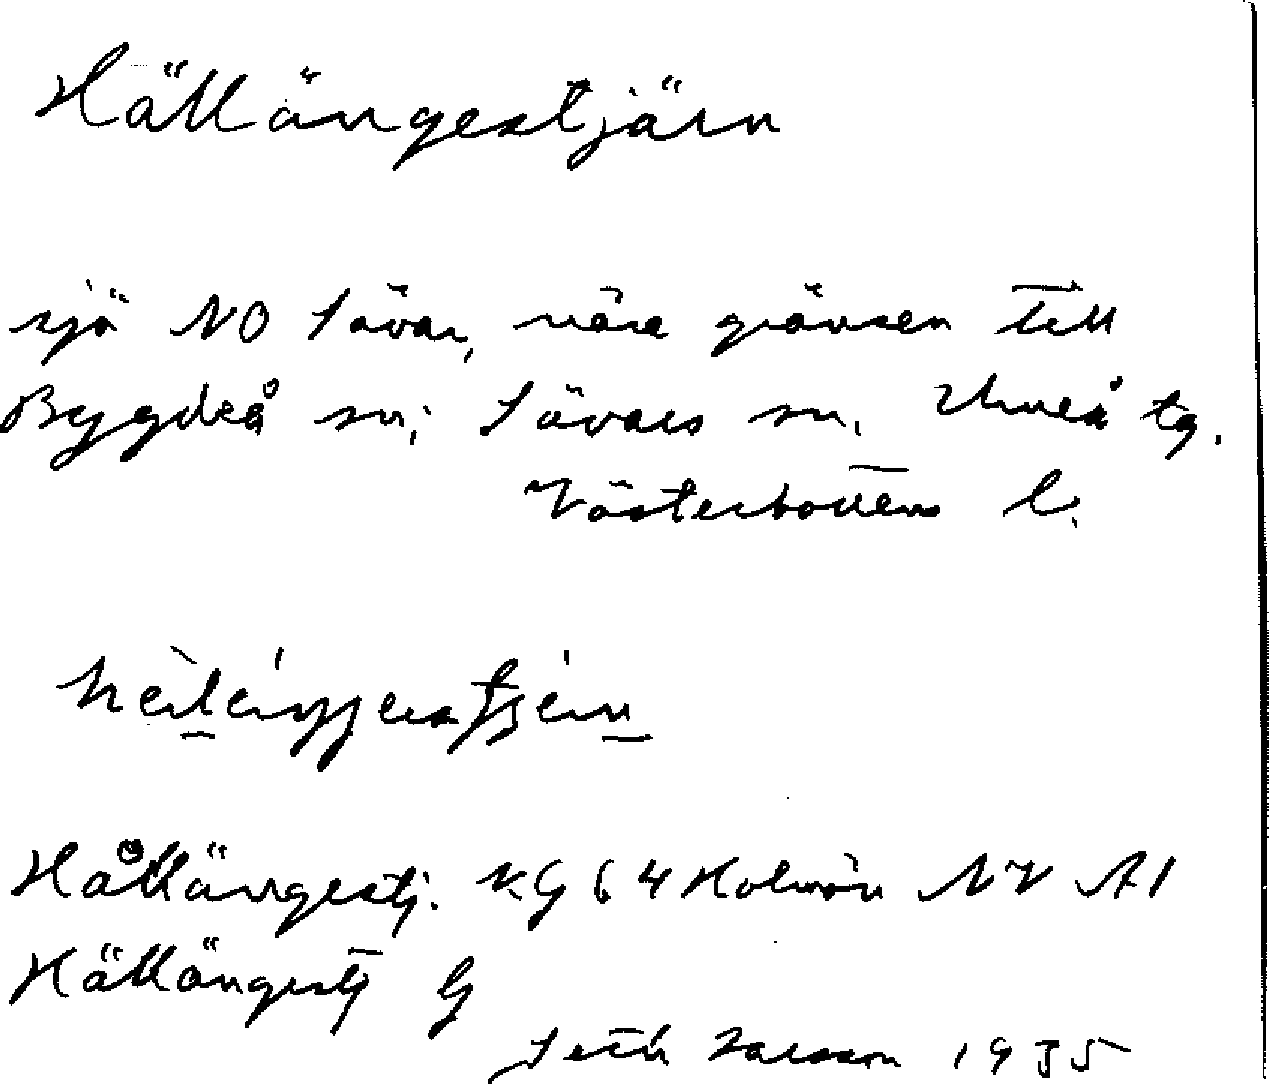 Hällängestjärn
sjö NO Sävar, nära gränsen till
Bygdeå sn; Sävars sn. Umeå tg.
Västerbottens l.
Hållängestj. KG 64 Holmön NV A1
Hällängestj G
Seth Larsson 1935